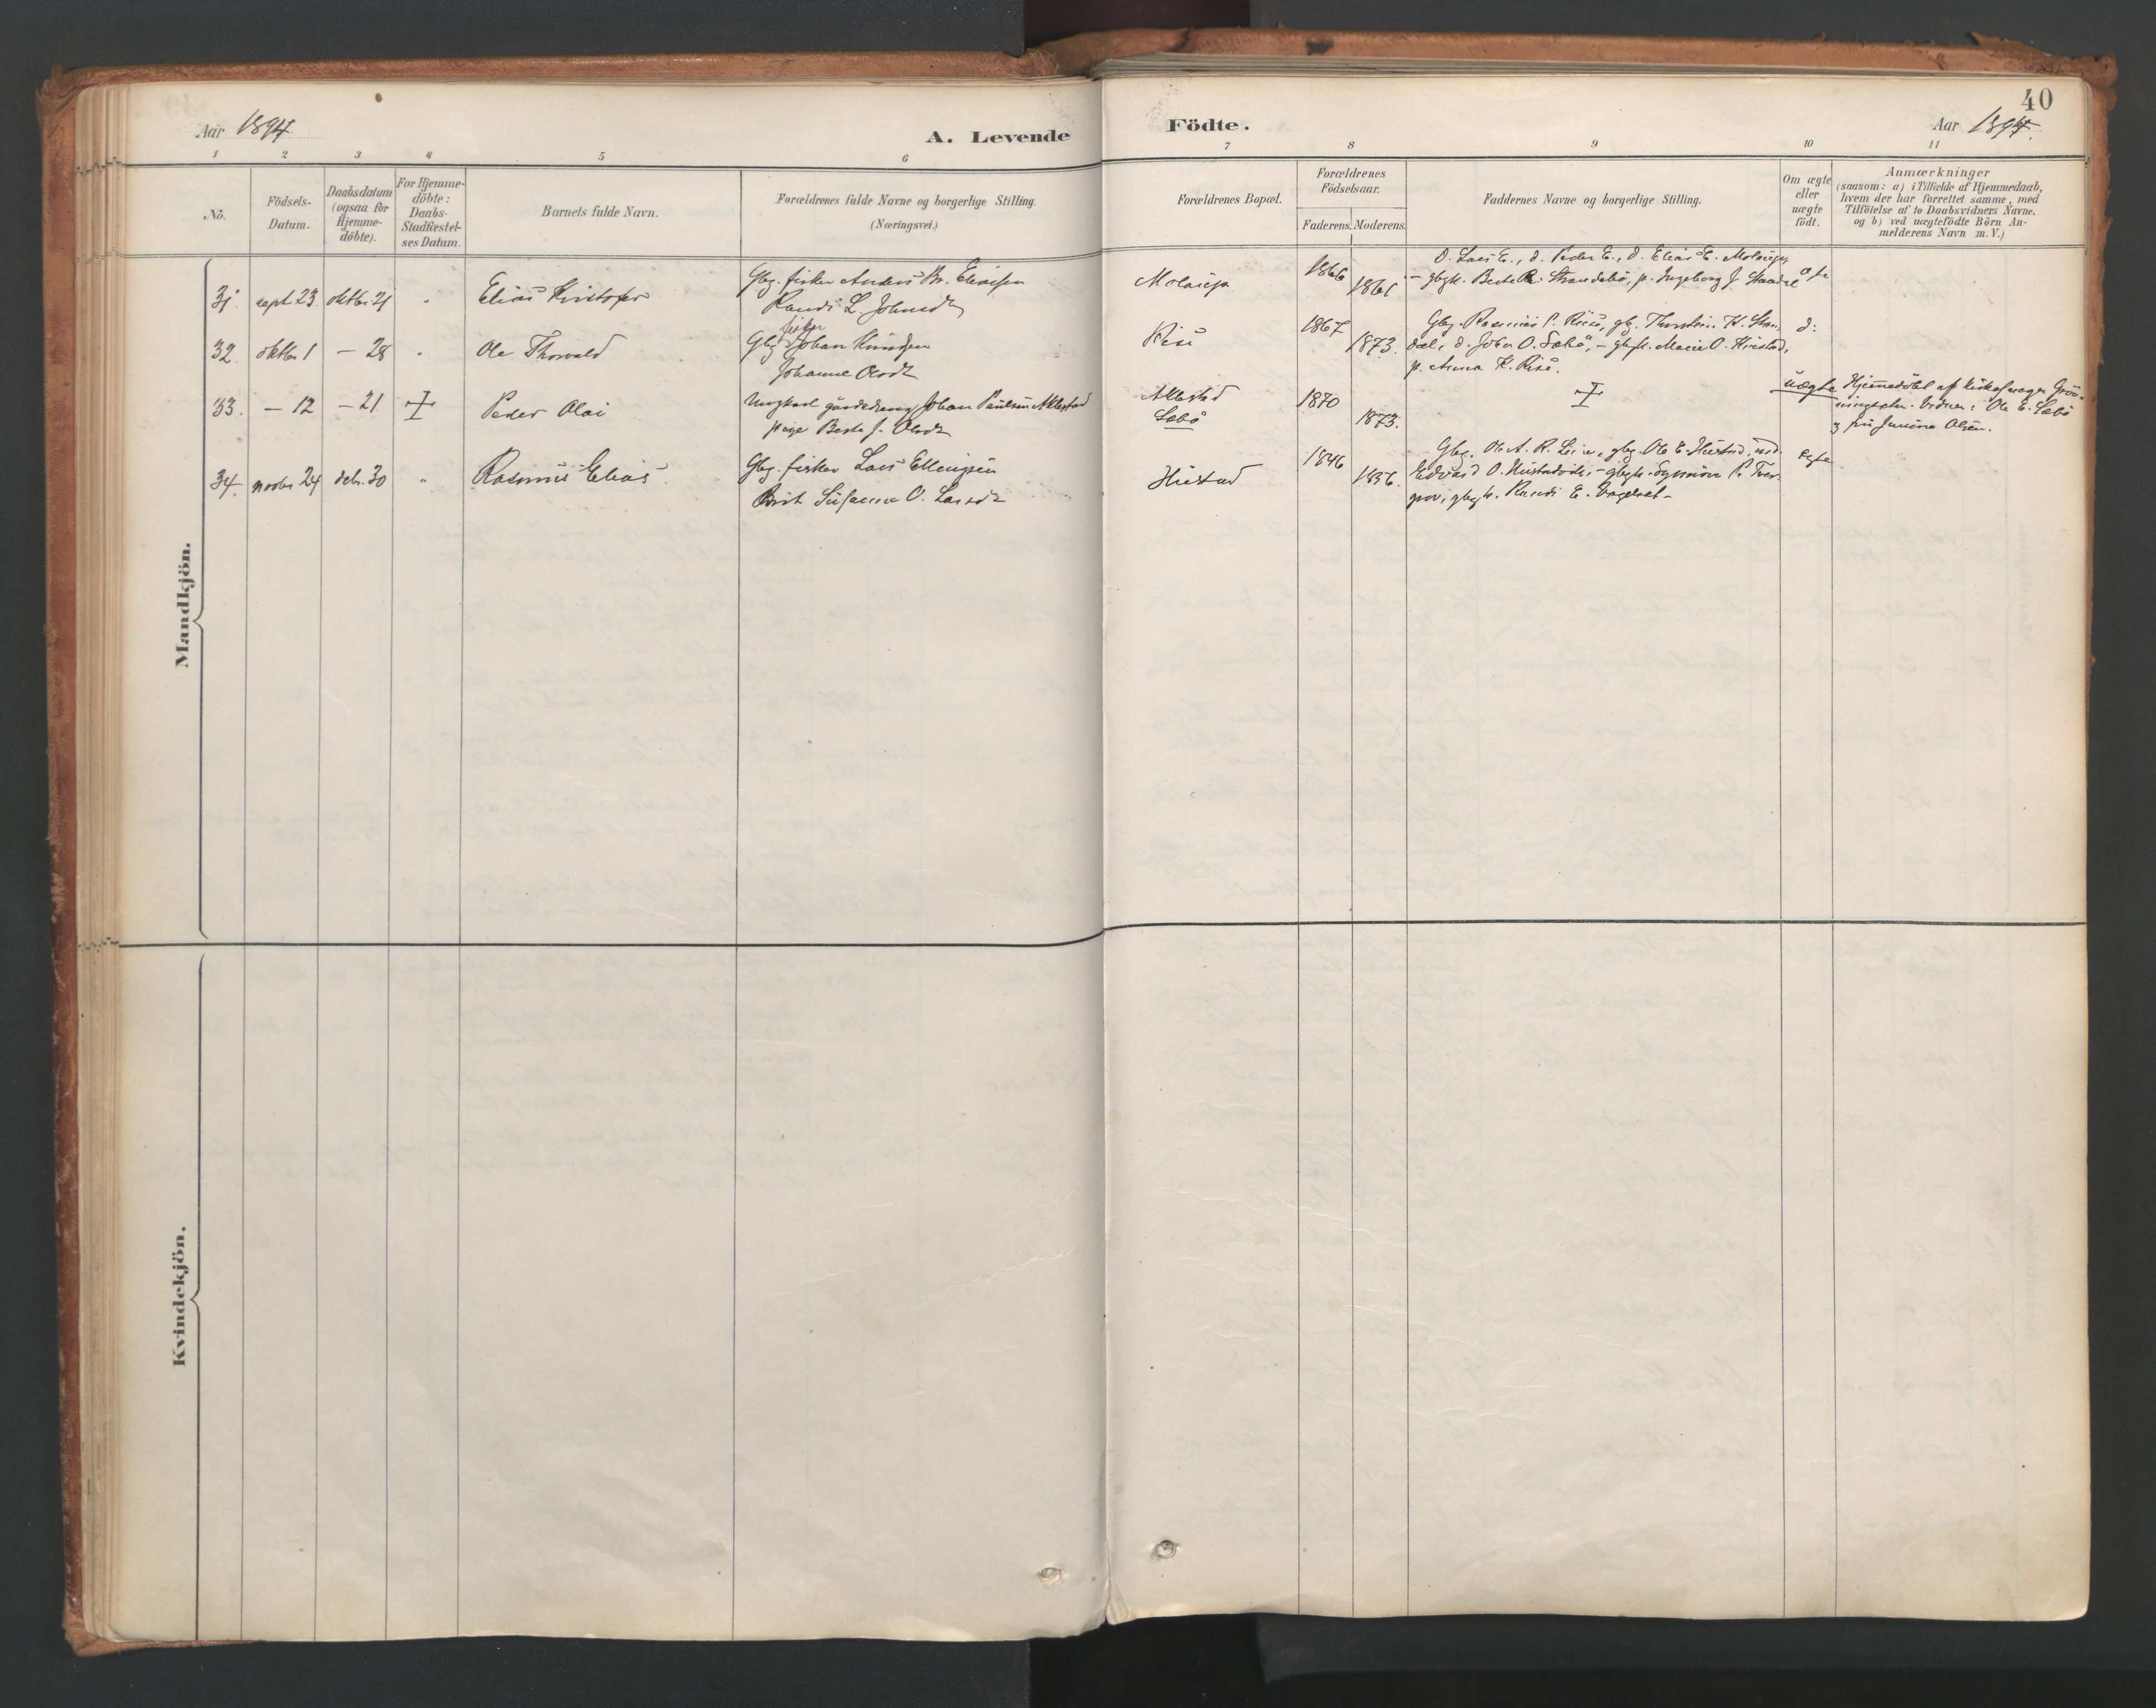 40
Aar 1894. A. Levende Födte. Aar 1894.
1 2 3 4 5 6 7 8 9 10 11
Nö.
Födsels-
Datum.
Daabsdatum
(ogsaa för
Hjemme-
döbte).
For Hjemme-
döbte:
Daabs-
Stadfæstel-
ses Datum.
Barnets fulde Navn.
Forældrenes fulde Navne og borgerlige Stilling.
(Næringsvei.)
Forældrenes Bopæl.
Forældrenes
Födselsaar.
Faderens. Moderens.
Faddernes Navne og borgerlige Stilling.
Om ægte
eller
uægte
födt.
Anmærkninger
(saasom: a) i Tilfælde af Hjemmedaab,
hvem der har forrettet samme, med
Tilföielse af to Daabsvidners Navne,
og b) ved uægtefödte Börn An-
melderens Navn m. V.)
Mandkjön.
31. sept. 23 oktbr. 21 " Elias Kristofer
Gbg. fisker Anders Br. Eliassen
Randi L. Johnsdt
1866
1861
O. Lars E., d. Peder E., d. Elias E.
32. oktbr 1 – 28 " Ole Thorvald
fisker
Gbg. Johan Knudsen
Johanne Olsdt
Rise
1867
1873.
Gbg. Rasmus P. Rise, gb. Thorstein K. Stan-
dal, d. Johan O. Sæbö, – gbfk. Marie O. Hustad,
p. Anna K. Rise.
d:
33. – 12 – 21 Peder Olai
Ungkarl gaardsdreng Johan Paulsen Aklestad
pige Berte J. Olsdt
Aklestad
Sæbö
1870
1873.
uægte
Hjemmedöbt af kirkesanger Grön-
ningsæter. Vidner: Ole E. Sæbö
Olsen.
34. novbr 24 debr. 30 " Rasmus Elias
Gbg. fisker Lars Ellingsen
Brit Susanne O. Larsdt
Hustad
1846
1856.
Gbg. Ole A. R. gbg. Ole E. Hustad,
Edvard O. – gbgk. Synnöve P.
gbgk. Randi E.
ægte
Kvindekjön.